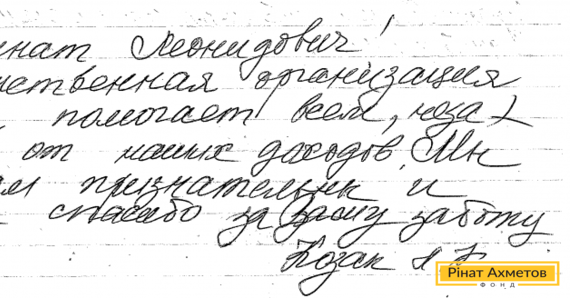 нат Леонидович!
ственная организация
помогает всем, неза
от наших доходов. Мы
ам признательны и
спасибо за Вашу заботу
Козак
Рінат Ахметов
ФОНД